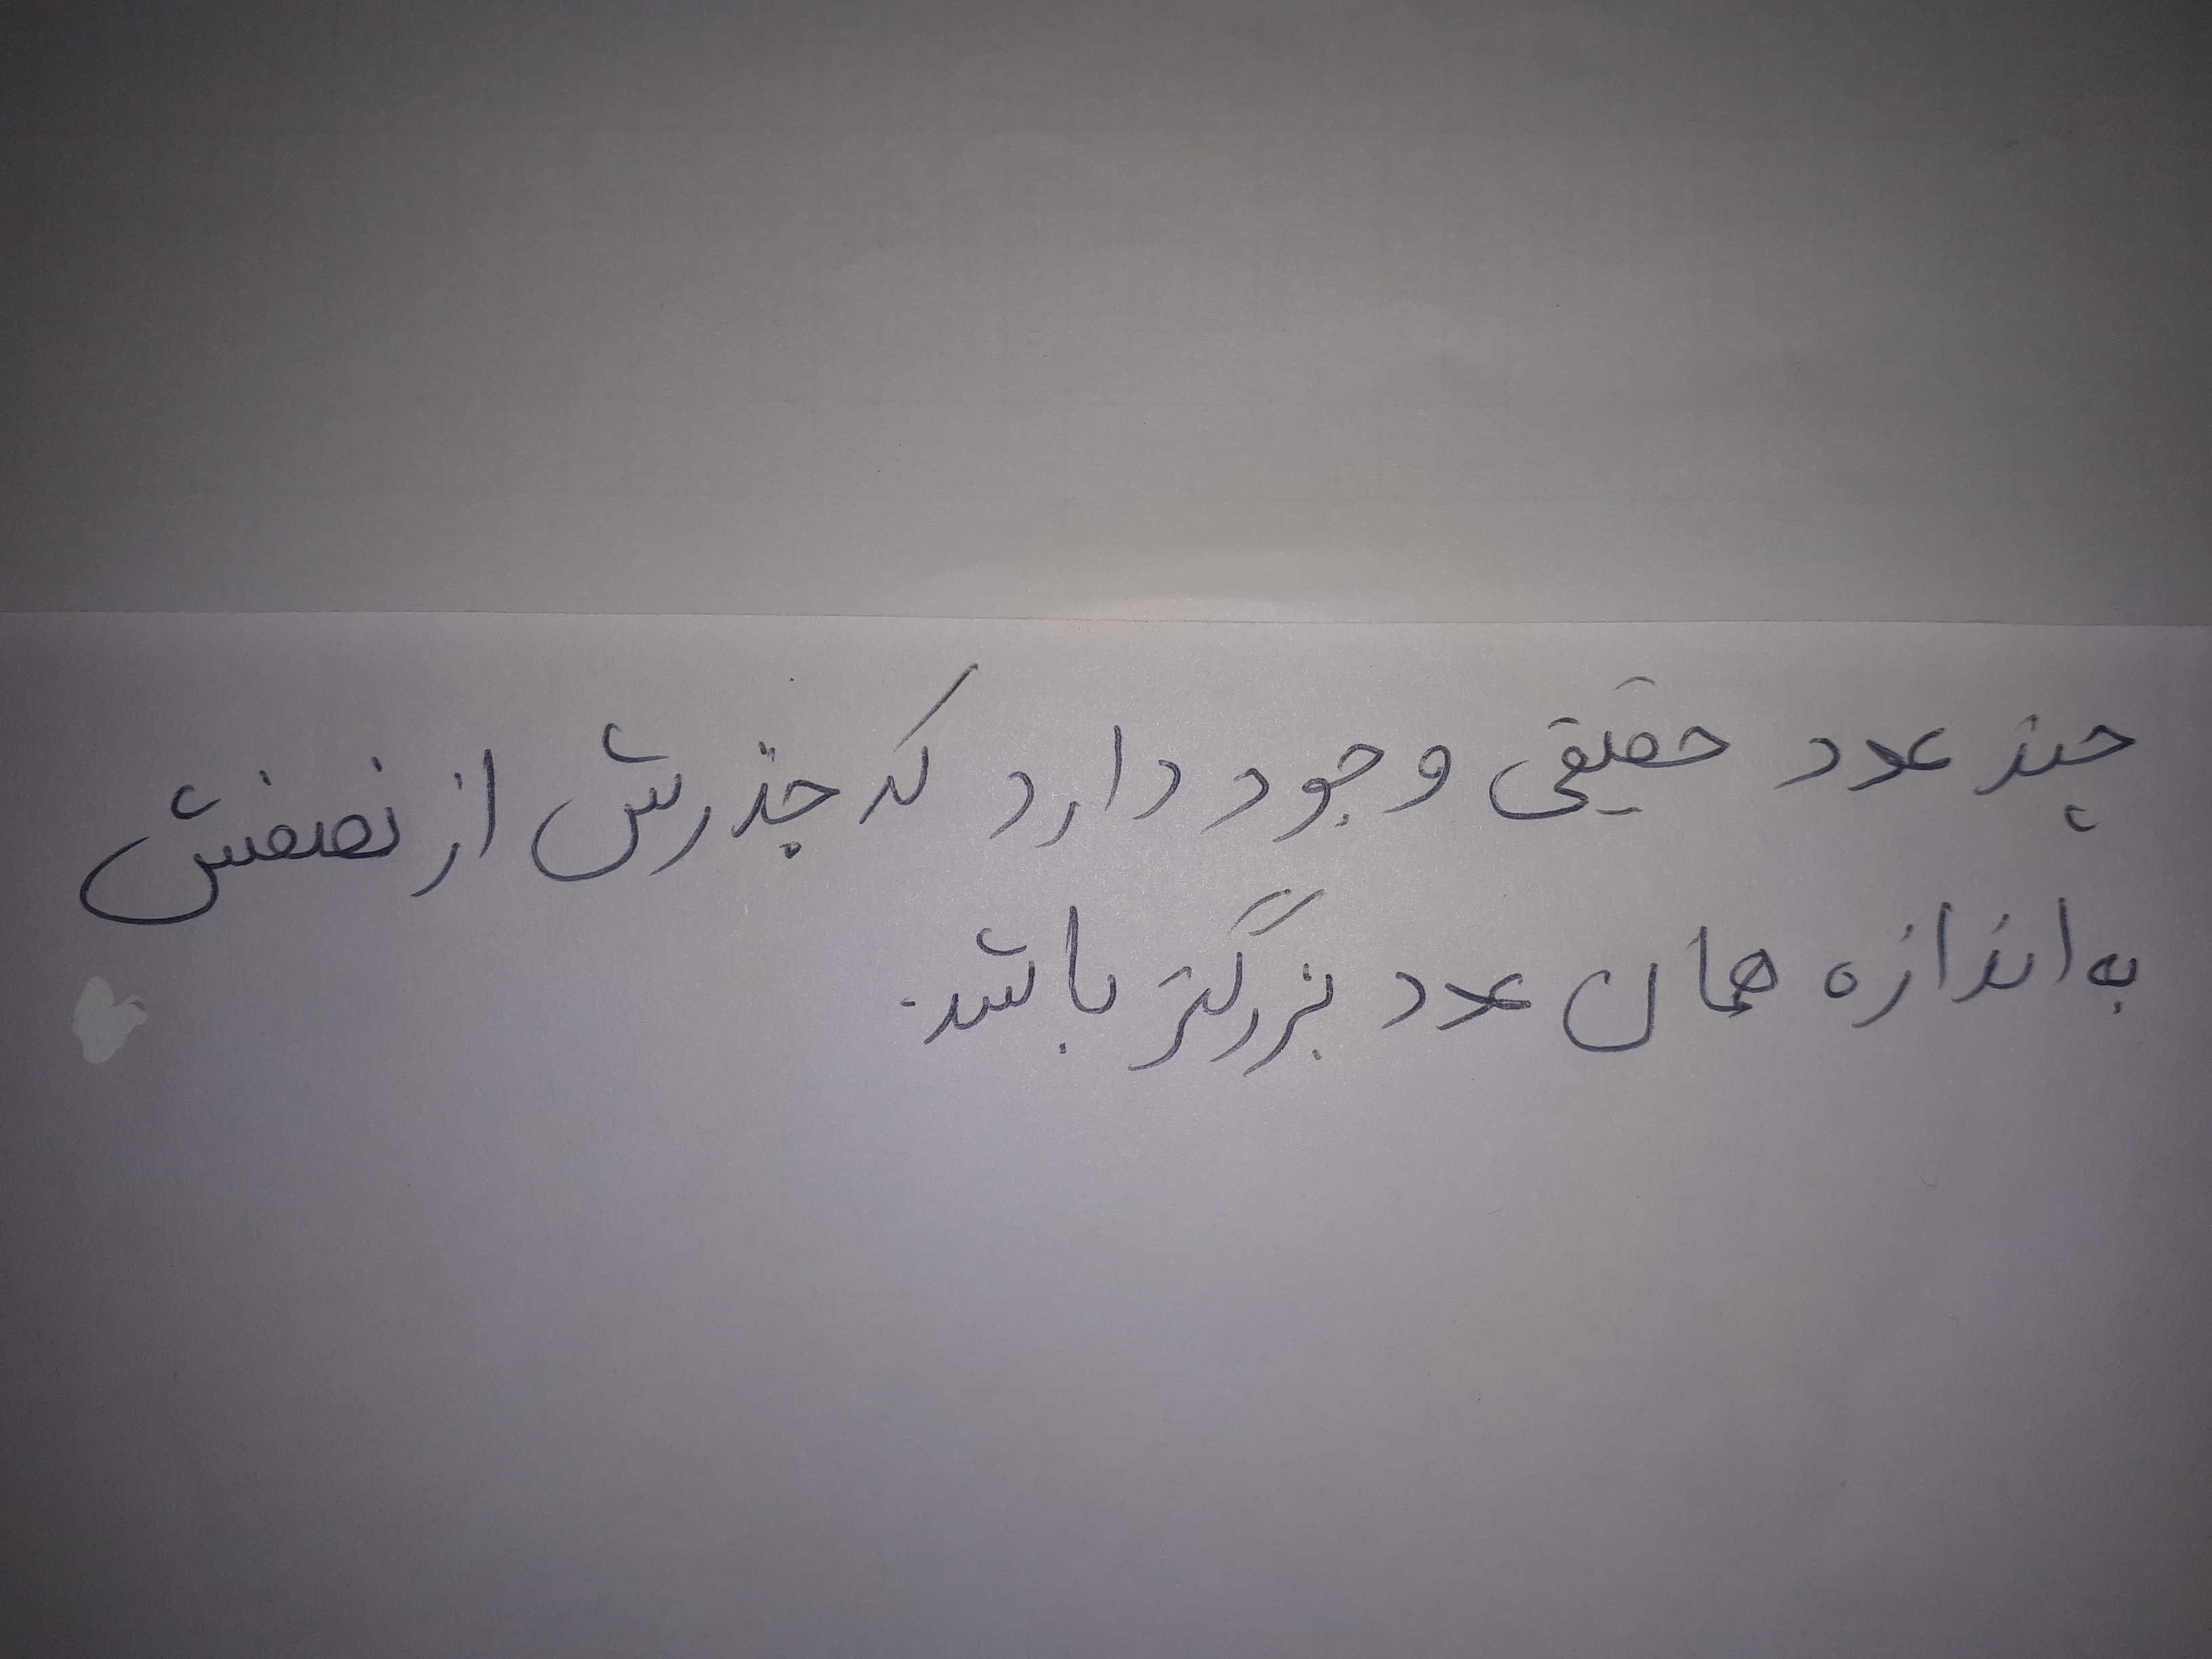 چند عدد حقیقی وجود دارد که جذرش از نصفش
به اندازه همان عدد بزرگتر باشد.